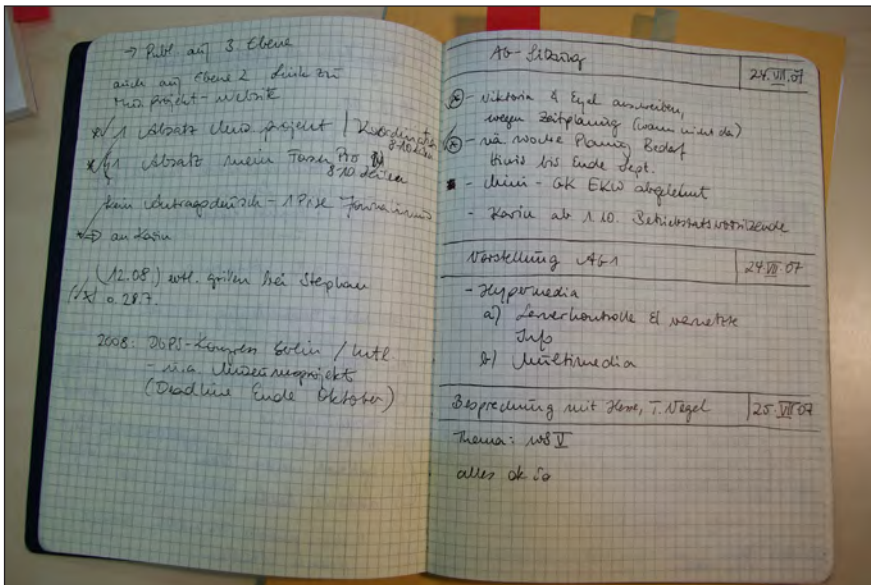 → Publ. auf 3. Ebene
auch auf Ebene 2 Link zu
projekt-Website
1 Absatz projekt / Koordination
8-10 Zeilen
1 Absatz mein Pro
8-10 Zeilen
kein Antragsdeutsch - 1 Prise
→ an Karin
(12.08.) evtl. grillen bei Stephan
o. 28.7.
2008: DGPS-Kongress Berlin / Intl.
- u.a. Museumsprojekt
(Deadline Ende Oktober)
AG-Sitzung
24.VII.07
- Viktoria &
wegen Zeitplanung (wann nicht da)
- nä. Woche Planung Bedarf
Hiwis bis Ende Sept.
- Mini-GK EKW abgelehnt
- Karin ab 1.10. Betriebsratsvorsitzende
Vorstellung AG1
24.VII.07
- Hypermedia
a) Lernerkontrolle & vernetzte
Info
b) Multimedia
Besprechung mit Hesse, T. Vogel
25.VII.07
Thema: WS V
alles ok so